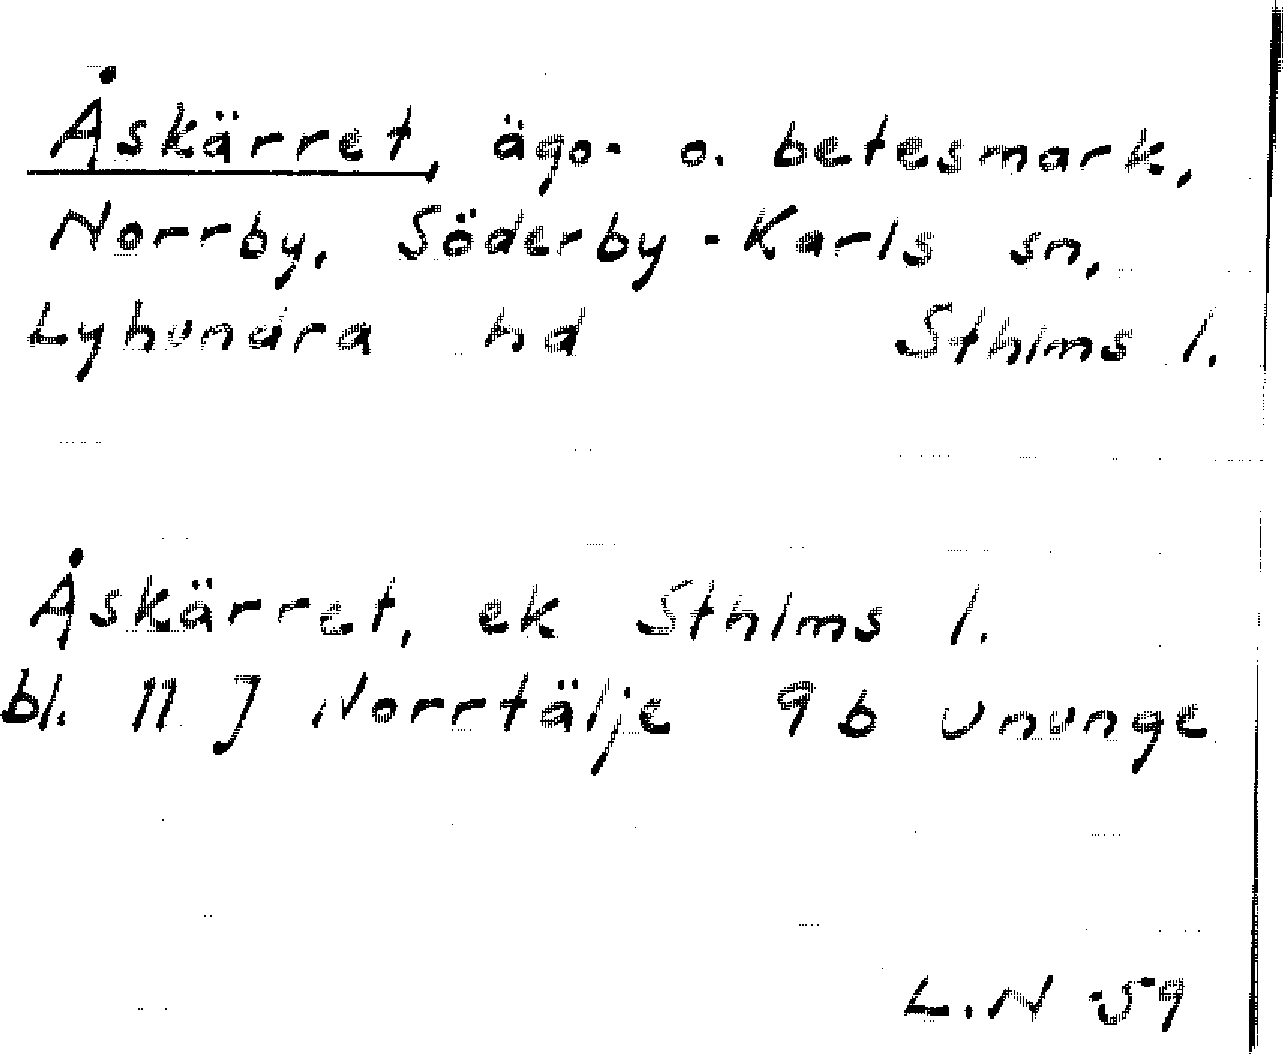 Åskärret, ägo- o. betesmark,
Norrby, Söderby-Karls sn,
Lyhundra hd Sthlms l.
Åskärret, ek Sthlms l.
bl. 11 J Norrtälje 9b Ununge
L.N 59